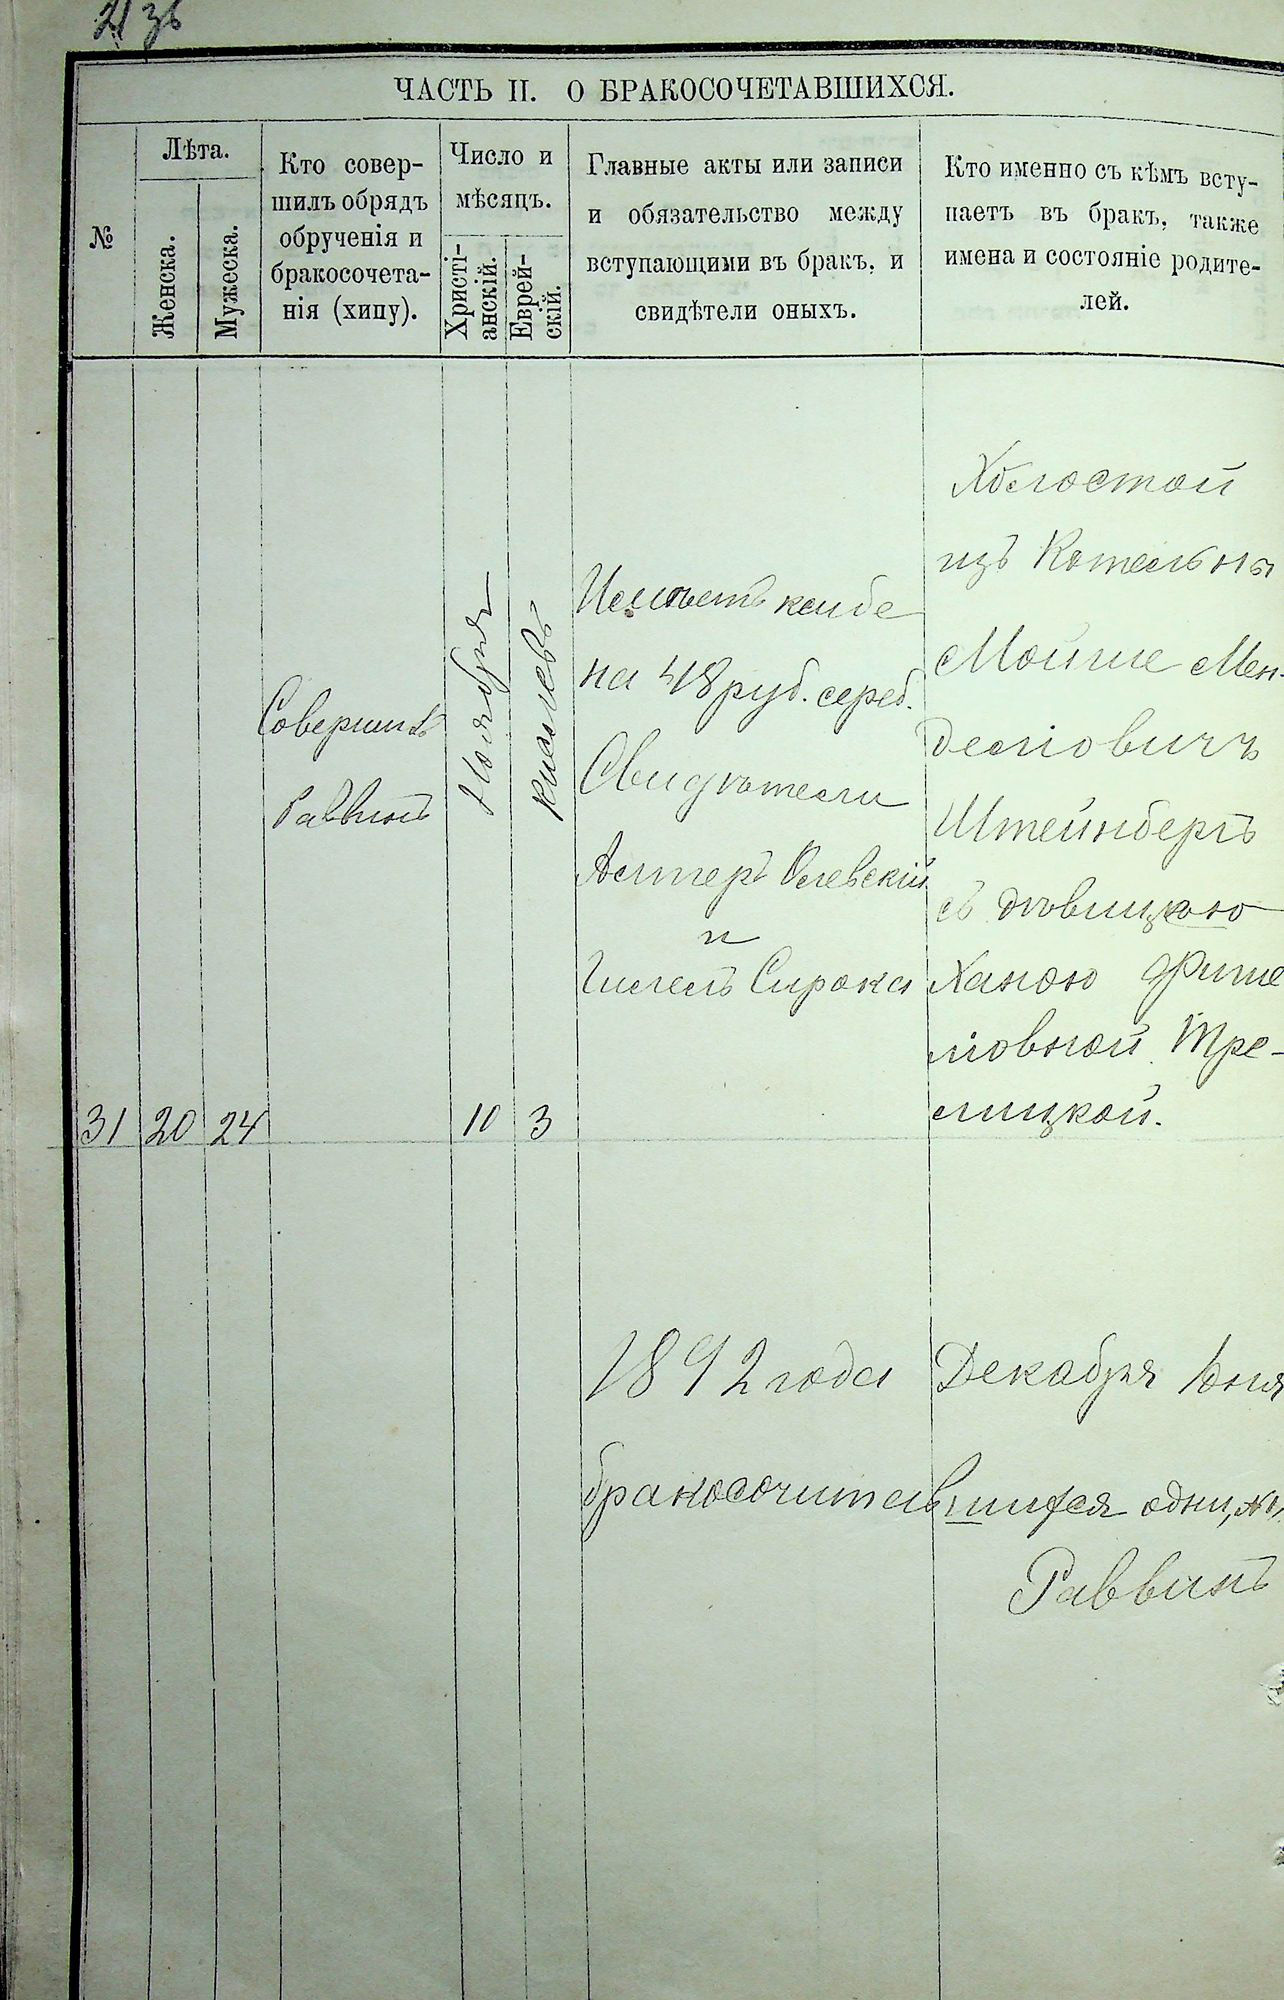 2 36
ЧАСТЬ II. О БРАКОСОЧЕТАВШИХСЯ.
№
Лѣта.
Женска.
Мужеска.
Кто совер-
шилъ обрядъ
обрученія и
бракосочета-
нія (хипу).
Число и
мѣсяцъ.
Христі-
анскій.
Еврей-
скій.
Главные акты или записи
и обязательство между
вступающими въ бракъ, и
свидѣтели оныхъ.
Кто именно съ кѣмъ всту-
паетъ въ бракъ, также
имена и состояніе родите-
лей.
31
20
24
Совершилъ
Раввинъ
Ноября
10
Кислевъ
3
на 48 руб. сереб.
Свидѣтели
Олевскій
и
Сирока
Холостой
изъ Котельны
Мойше Мен-
делiовичъ
Штейнбергъ
съ дѣвицкою
Ханою Фише
лiовной Тре-
лицкой.
1892 года Декабря дня
бракосочитавшихся одни, №
Раввинъ